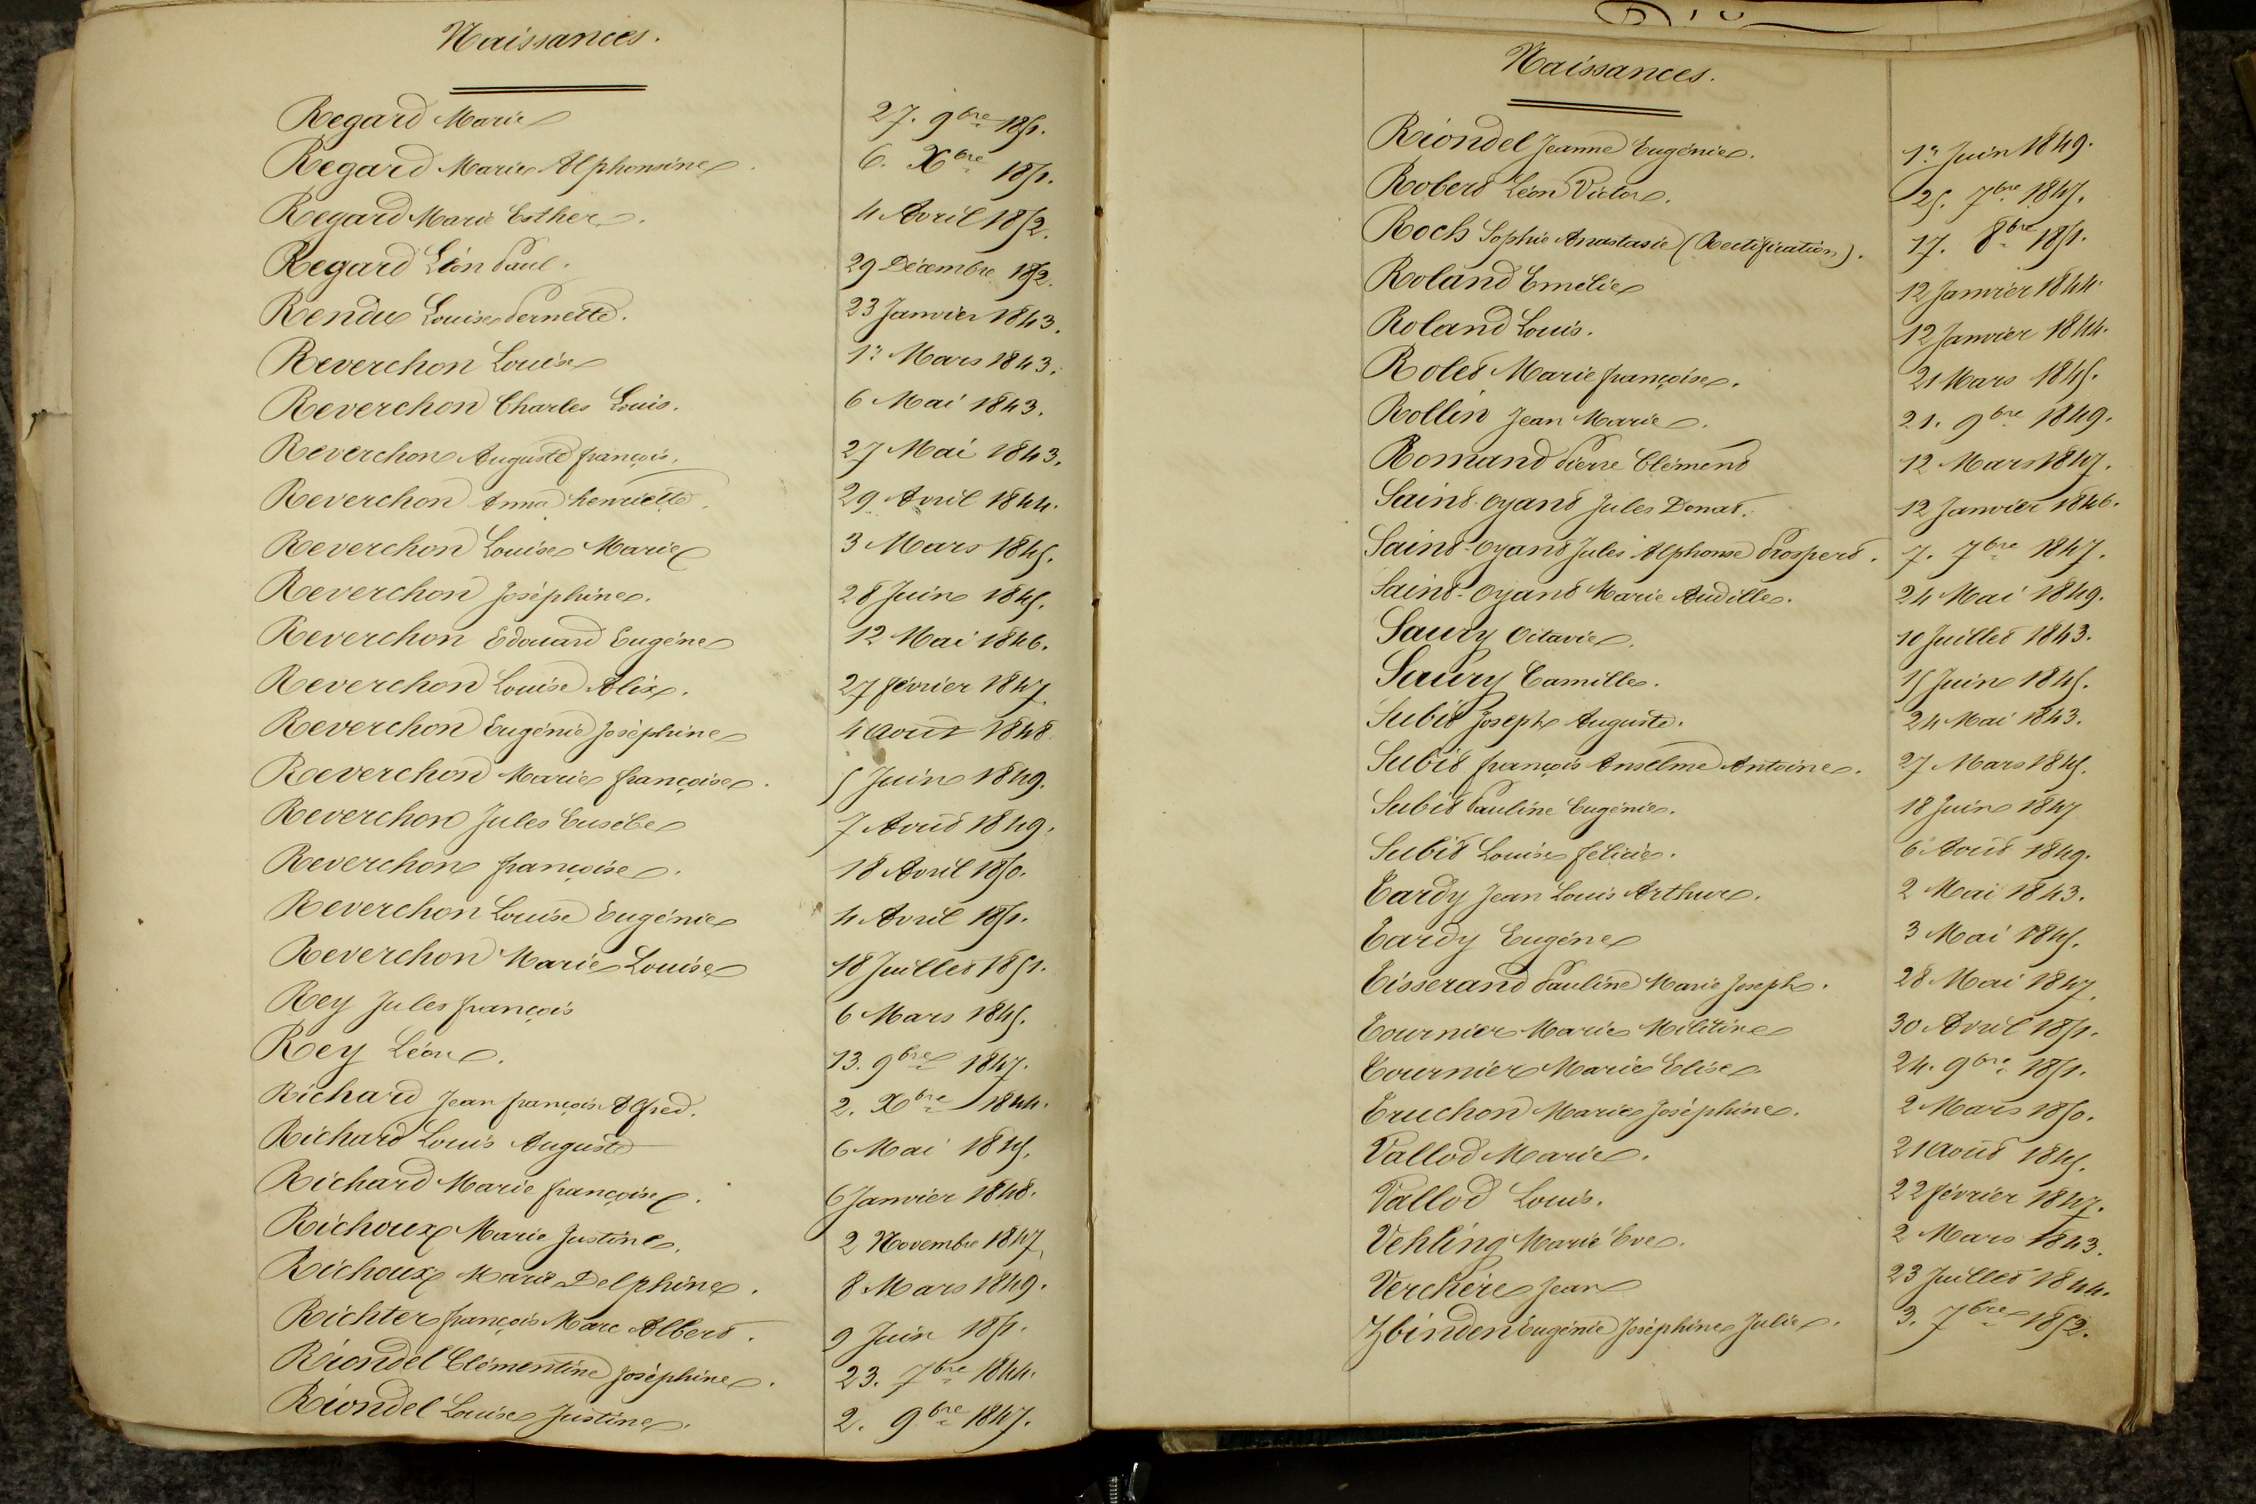 Naissances.
Regard Marie 27. 9bre 1851.
Regard Marie Alphonsine. 6. Xbre 1851.
Regard Marie Esther. 4 Avril 1852.
Regard Léon Paul. 29 Décembre 1852.
Rendu Louise Pernette. 23 Janvier 1843.
Reverchon Louise 1er Mars 1843.
Reverchon Charles Louis. 6 Mai 1843.
Reverchon Auguste françois. 27 Mai 1843.
Reverchon Anna henriette. 29 Avril 1844.
Reverchon Louise Marie 3 Mars 1845.
Reverchon Joséphine. 28 Juin 1845.
Reverchon Edouard Eugène 12 Mai 1846.
Reverchon Louise Alix. 27 février 1847
Reverchon Eugénie Joséphine 4 août 1848
Reverchon Marie françoise. 5 Juin 1849.
Reverchon Jules Eusèbe 7 Août 1849.
Reverchon françoise. 18 Avril 1850.
Reverchon Louise Eugénie 4 Avril 1851.
Reverchon Marie Louise 18 Juillet 1851.
Rey Jules françois 6 Mars 1845.
Rey Léon. 13. 9bre 1847.
Richard Jean françois Alfred. 2. Xbre 1844.
Richard Louis Auguste 6 Mai 1845.
Richard Marie françoise. 6 Janvier 1848.
Richoux Marie Justine. 2 Novembre 1847
Richoux Marie Delphine. 8 Mars 1849.
Richter françois Marc Albert. 9 Juin 1851.
Riondel Clémentine Joséphine. 23. 7bre 1844.
Riondel Louise Justine. 2. 9bre 1847.
Naissances.
Riondel Jeanne Eugénie. 1er Juin 1849.
Robert Léon Victor. 25. 7bre 1845.
Roch Sophie Anastasie (Rectification). 17. 8bre 1851.
Roland Emélie 12 Janvier 1844.
Roland Louis. 12 Janvier 1844.
Rolet Marie françoise. 21 Mars 1845.
Rollin Jean Marie. 21. 9bre 1849.
Romand Pierre Clément 12 Mars 1847.
Saint-oyant Jules Donat. 12 Janvier 1846.
Saint-oyant Jules Alphonse Prospert. 7. 7bre 1847.
Saint-oyant Marie Audille. 24 Mai 1849.
Saury Octavie. 10 Juillet 1843.
Saury Camille. 15 Juin 1845.
Subit Joseph Auguste. 24 Mai 1843.
Subit françois Anselme Antoine. 27 Mars 1845.
Subit Pauline Eugénie. 18 Juin 1847
Subit Louise félicie. 6 Août 1849.
Tardy Jean Louis Arthur. 2 Mai 1843.
Tardy Eugène 3 Mai 1845.
Tisserand Pauline Marie Joseph. 28 Mai 1847.
Tournier Marie Militine 30 Avril 1851.
Tournier Marie Elise. 24. 9bre 1851.
Truchon Marie Joséphine. 2 Mars 1850.
Vallod Marie. 21 août 1845.
Vallod Louis. 22 février 1847.
Vehling Marie Eve. 2 Mars 1843.
Verchère Jean 23 Juillet 1844.
Zbinden Eugénie Joséphine Julie. 3. 7bre 1852.